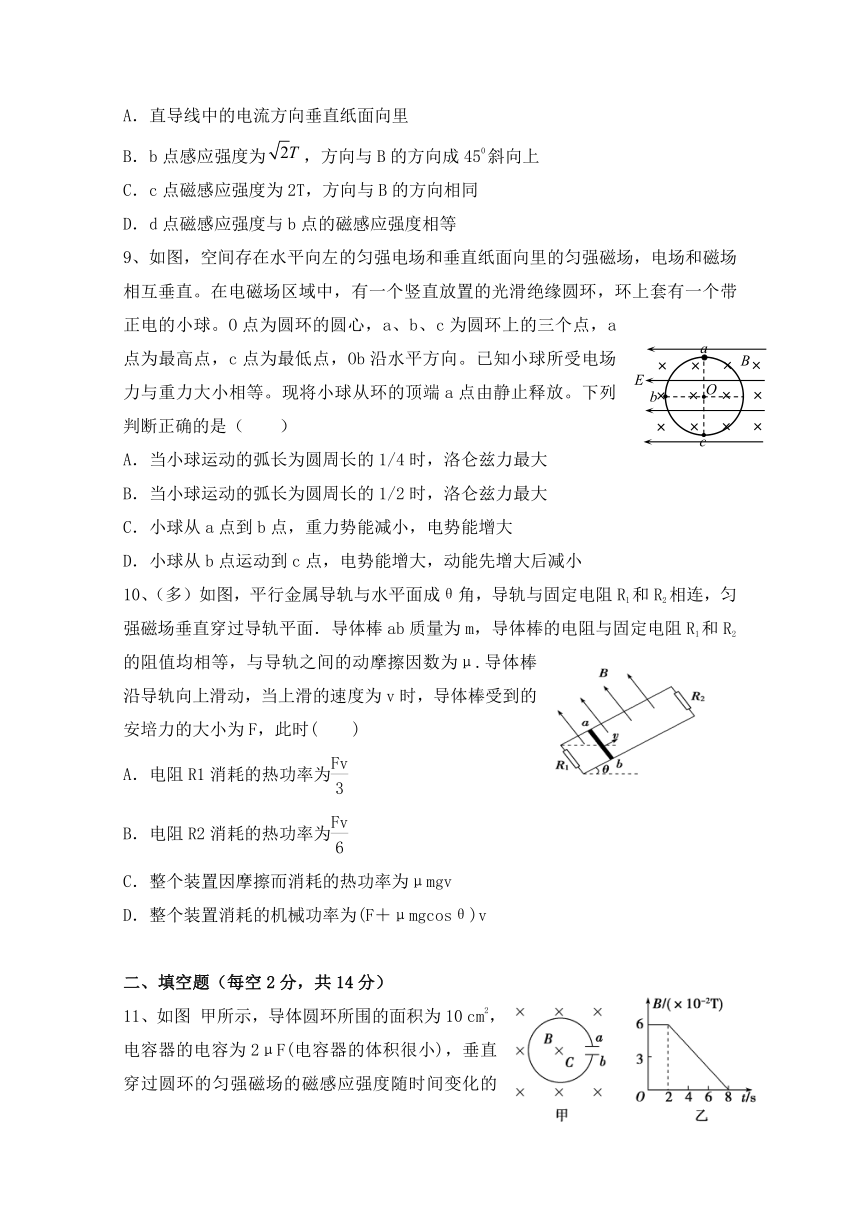 A．直导线中的电流方向垂直纸面向里
B．b点感应强度为√2T，方向与B的方向成45⁰斜向上
C．c点磁感应强度为2T，方向与B的方向相同
D．d点磁感应强度与b点的磁感应强度相等
9、如图，空间存在水平向左的匀强电场和垂直纸面向里的匀强磁场，电场和磁场
相互垂直。在电磁场区域中，有一个竖直放置的光滑绝缘圆环，环上套有一个带
正电的小球。O点为圆环的圆心，a、b、c为圆环上的三个点，a
点为最高点，c点为最低点，Ob沿水平方向。已知小球所受电场
力与重力大小相等。现将小球从环的顶端a点由静止释放。下列
判断正确的是（　　）
a
B
E
b
O
c
A．当小球运动的弧长为圆周长的1/4时，洛仑兹力最大
B．当小球运动的弧长为圆周长的1/2时，洛仑兹力最大
C．小球从a点到b点，重力势能减小，电势能增大
D．小球从b点运动到c点，电势能增大，动能先增大后减小
10、（多）如图，平行金属导轨与水平面成θ角，导轨与固定电阻R₁和R₂相连，匀
强磁场垂直穿过导轨平面．导体棒ab质量为m，导体棒的电阻与固定电阻R₁和R₂
的阻值均相等，与导轨之间的动摩擦因数为μ.导体棒
沿导轨向上滑动，当上滑的速度为v时，导体棒受到的
安培力的大小为F，此时(　　)
B
R₂
a
v
R₁
θ
b
A．电阻R1消耗的热功率为Fv/3
B．电阻R2消耗的热功率为Fv/6
C．整个装置因摩擦而消耗的热功率为μmgv
D．整个装置消耗的机械功率为(F＋μmgcosθ)v
二、填空题（每空2分，共14分）
11、如图 甲所示，导体圆环所围的面积为10 cm²，
电容器的电容为2μF(电容器的体积很小)，垂直
穿过圆环的匀强磁场的磁感应强度随时间变化的
B
C
a
b
甲
B/(×10⁻²T)
6
3
O 2 4 6 8 t/s
乙